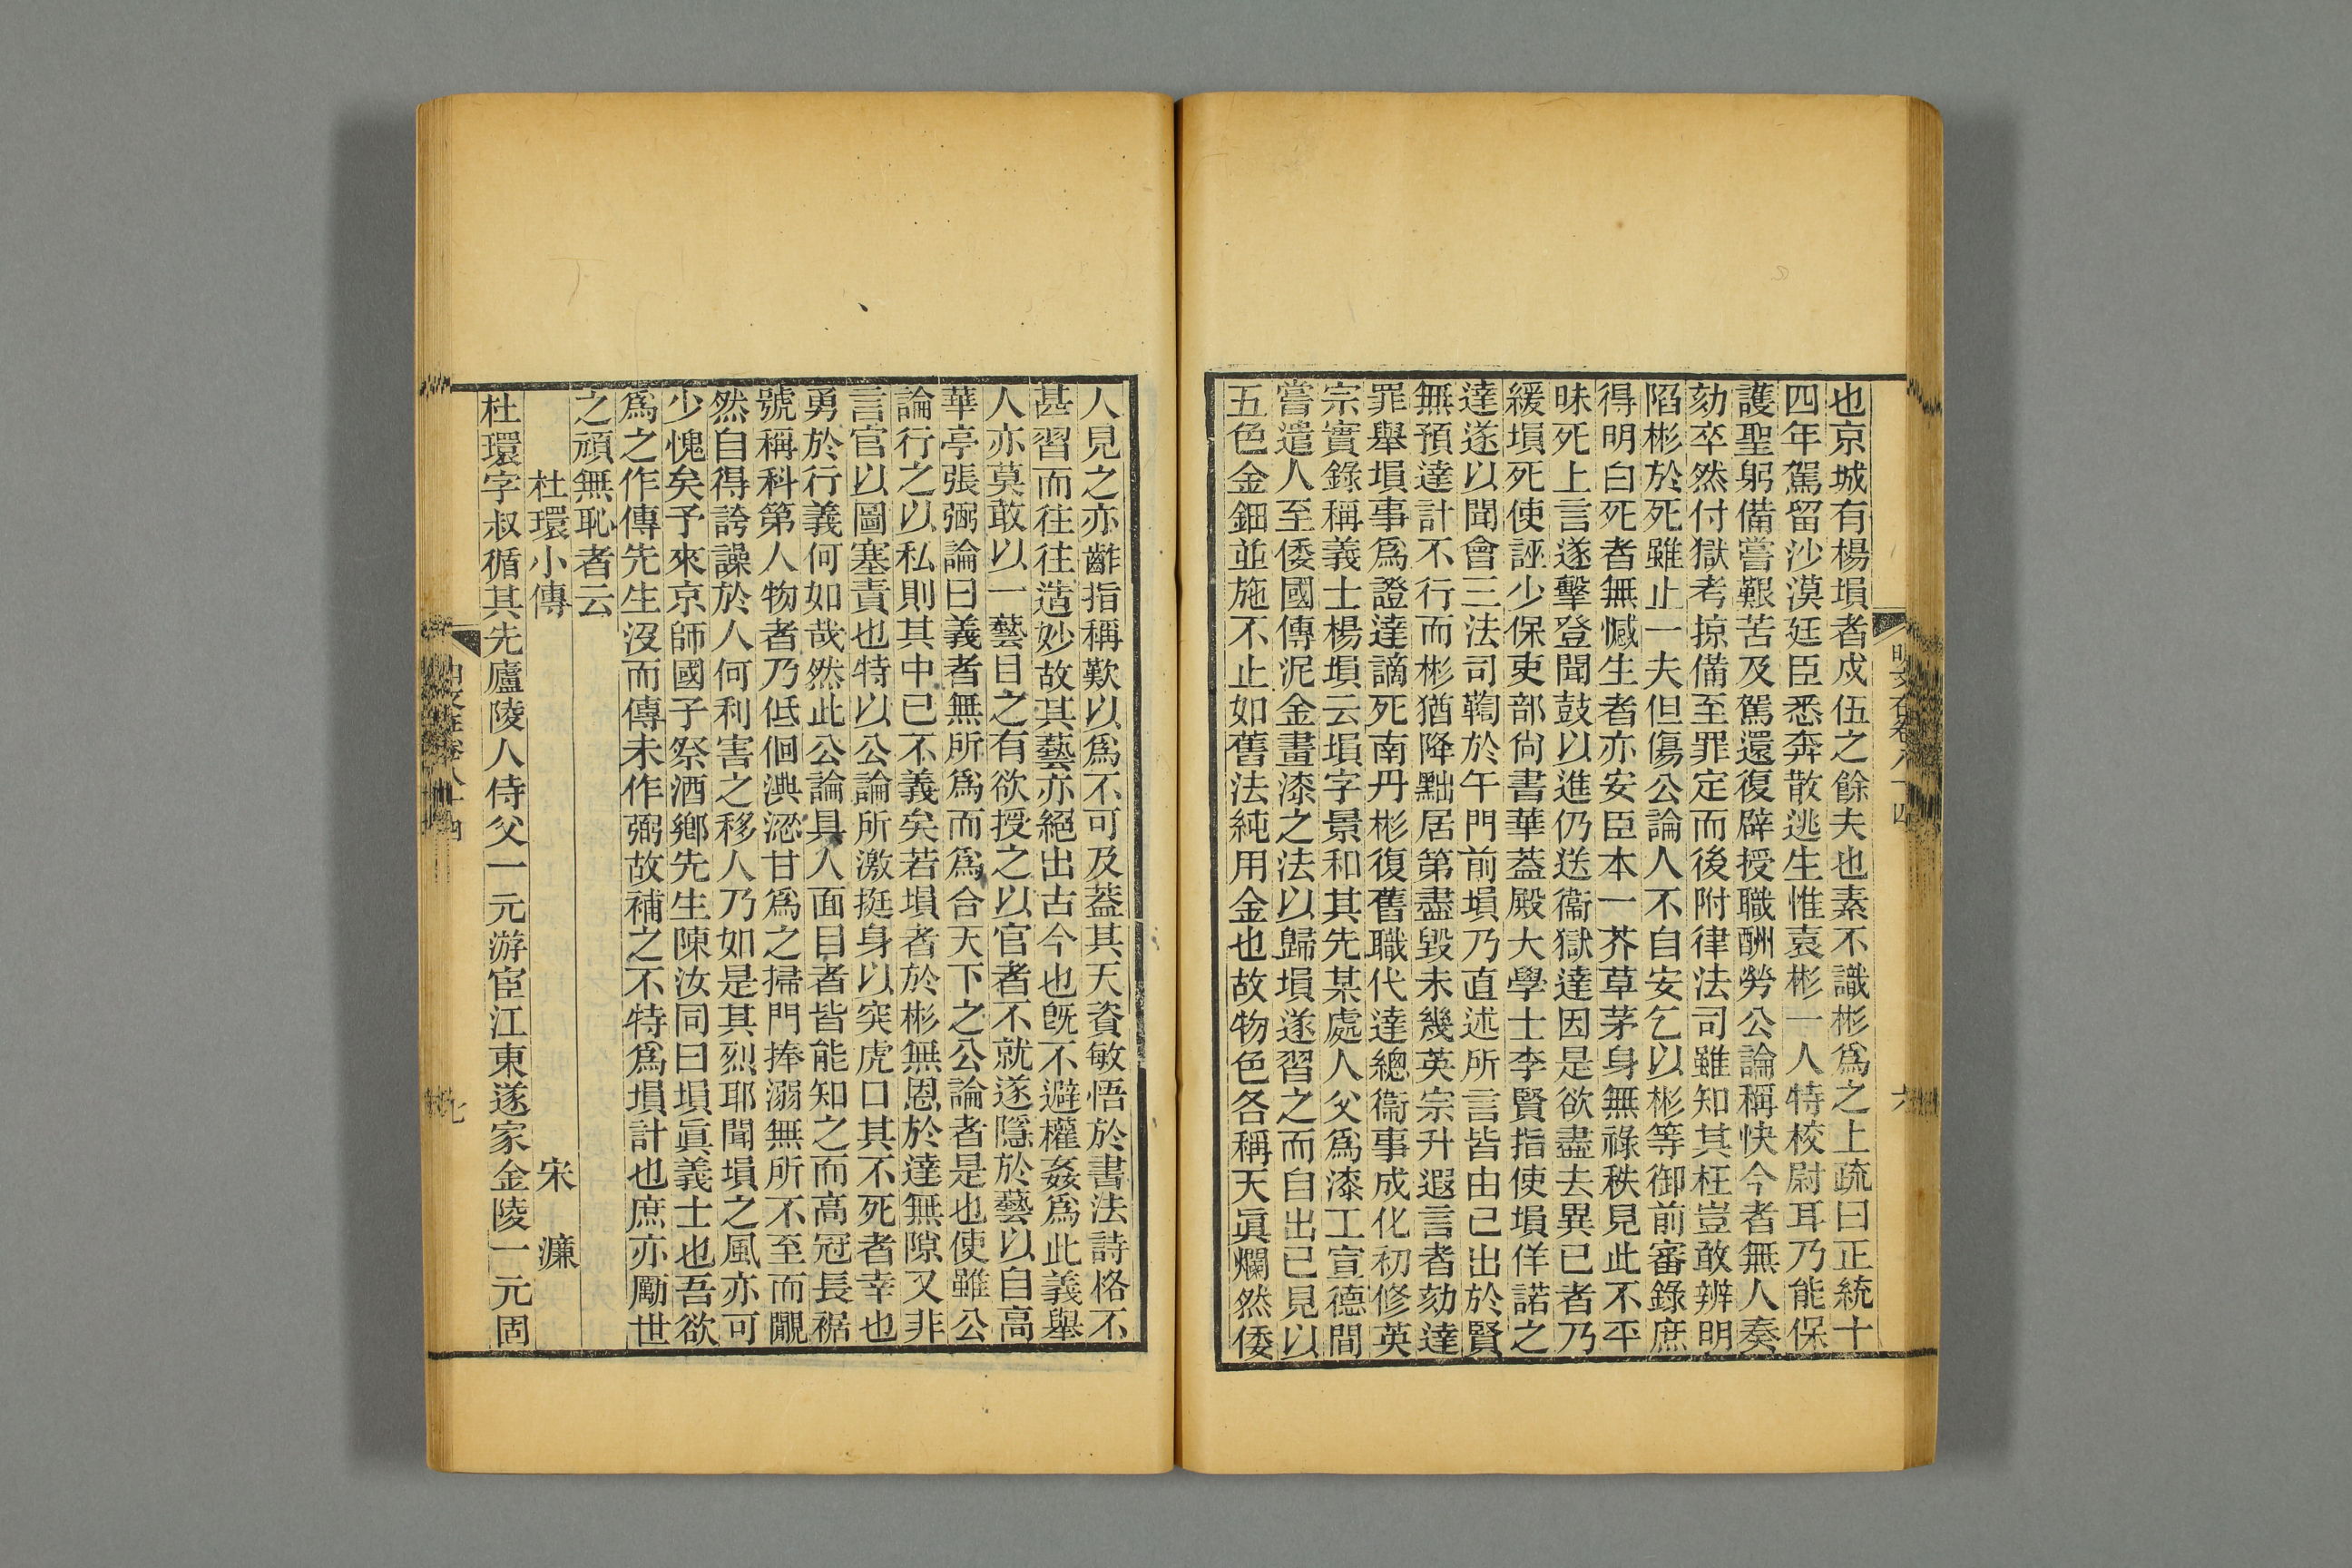 也京城有楊塤者戍伍之餘夫也素不識彬爲之上疏曰正統十
四年駕留沙漠廷臣悉奔散逃生惟袁彬一人特校尉耳乃能保
護聖躬備嘗艱苦及駕還復辟授職酬勞公論稱快今者無人奏
劾卒然付獄考掠備至罪定而後附律法司雖知其枉豈敢辨明
陷彬於死雖止一夫但傷公論人不自安乞以彬等御前審錄庶
得明白死者無憾生者亦安臣本一芥草茅身無祿秩見此不平
昧死上言遂擊登聞鼓以進仍送衞獄達因是欲盡去異己者乃
緩塤死使誣少保吏部尙書華蓋殿大學士李賢指使塤佯諾之
達遂以聞會三法司鞫於午門前塤乃直述所言皆由己出於賢
無預達計不行而彬猶降黜居第盡毀未幾英宗升遐言者劾達
罪舉塤事爲證達謫死南丹彬復舊職代達總衞事成化初修英
宗實錄稱義士楊塤云塤字景和其先某處人父爲漆工宣德間
嘗遣人至倭國傳泥金畫漆之法以歸塤遂習之而自出己見以
五色金鈿並施不止如舊法純用金也故物色各稱天眞爛然倭
明文在卷八十四
六
人見之亦齰指稱歎以爲不可及蓋其天資敏悟於書法詩格不
甚習而往往造妙故其藝亦絕出古今也旣不避權姦爲此義舉
人亦莫敢以一藝目之有欲授之以官者不就遂隱於藝以自高
華亭張弼論曰義者無所爲而爲合天下之公論者是也使雖公
論行之以私則其中已不義矣若塤者於彬無恩於達無隙又非
言官以圖塞責也特以公論所激挺身以突虎口其不死者幸也
勇於行義何如哉然此公論具人面目者皆能知之而高冠長裾
號稱科第人物者乃低佪淟涊甘爲之掃門捧溺無所不至而靦
然自得誇譟於人何利害之移人乃如是其烈耶聞塤之風亦可
少愧矣予來京師國子祭酒鄉先生陳汝同曰塤眞義士也吾欲
爲之作傳先生沒而傳未作弼故補之不特爲塤計也庶亦勵世
之頑無恥者云
杜環小傳 宋濂
杜環字叔循其先廬陵人侍父一元游宦江東遂家金陵一元固
明文在卷八十四
七